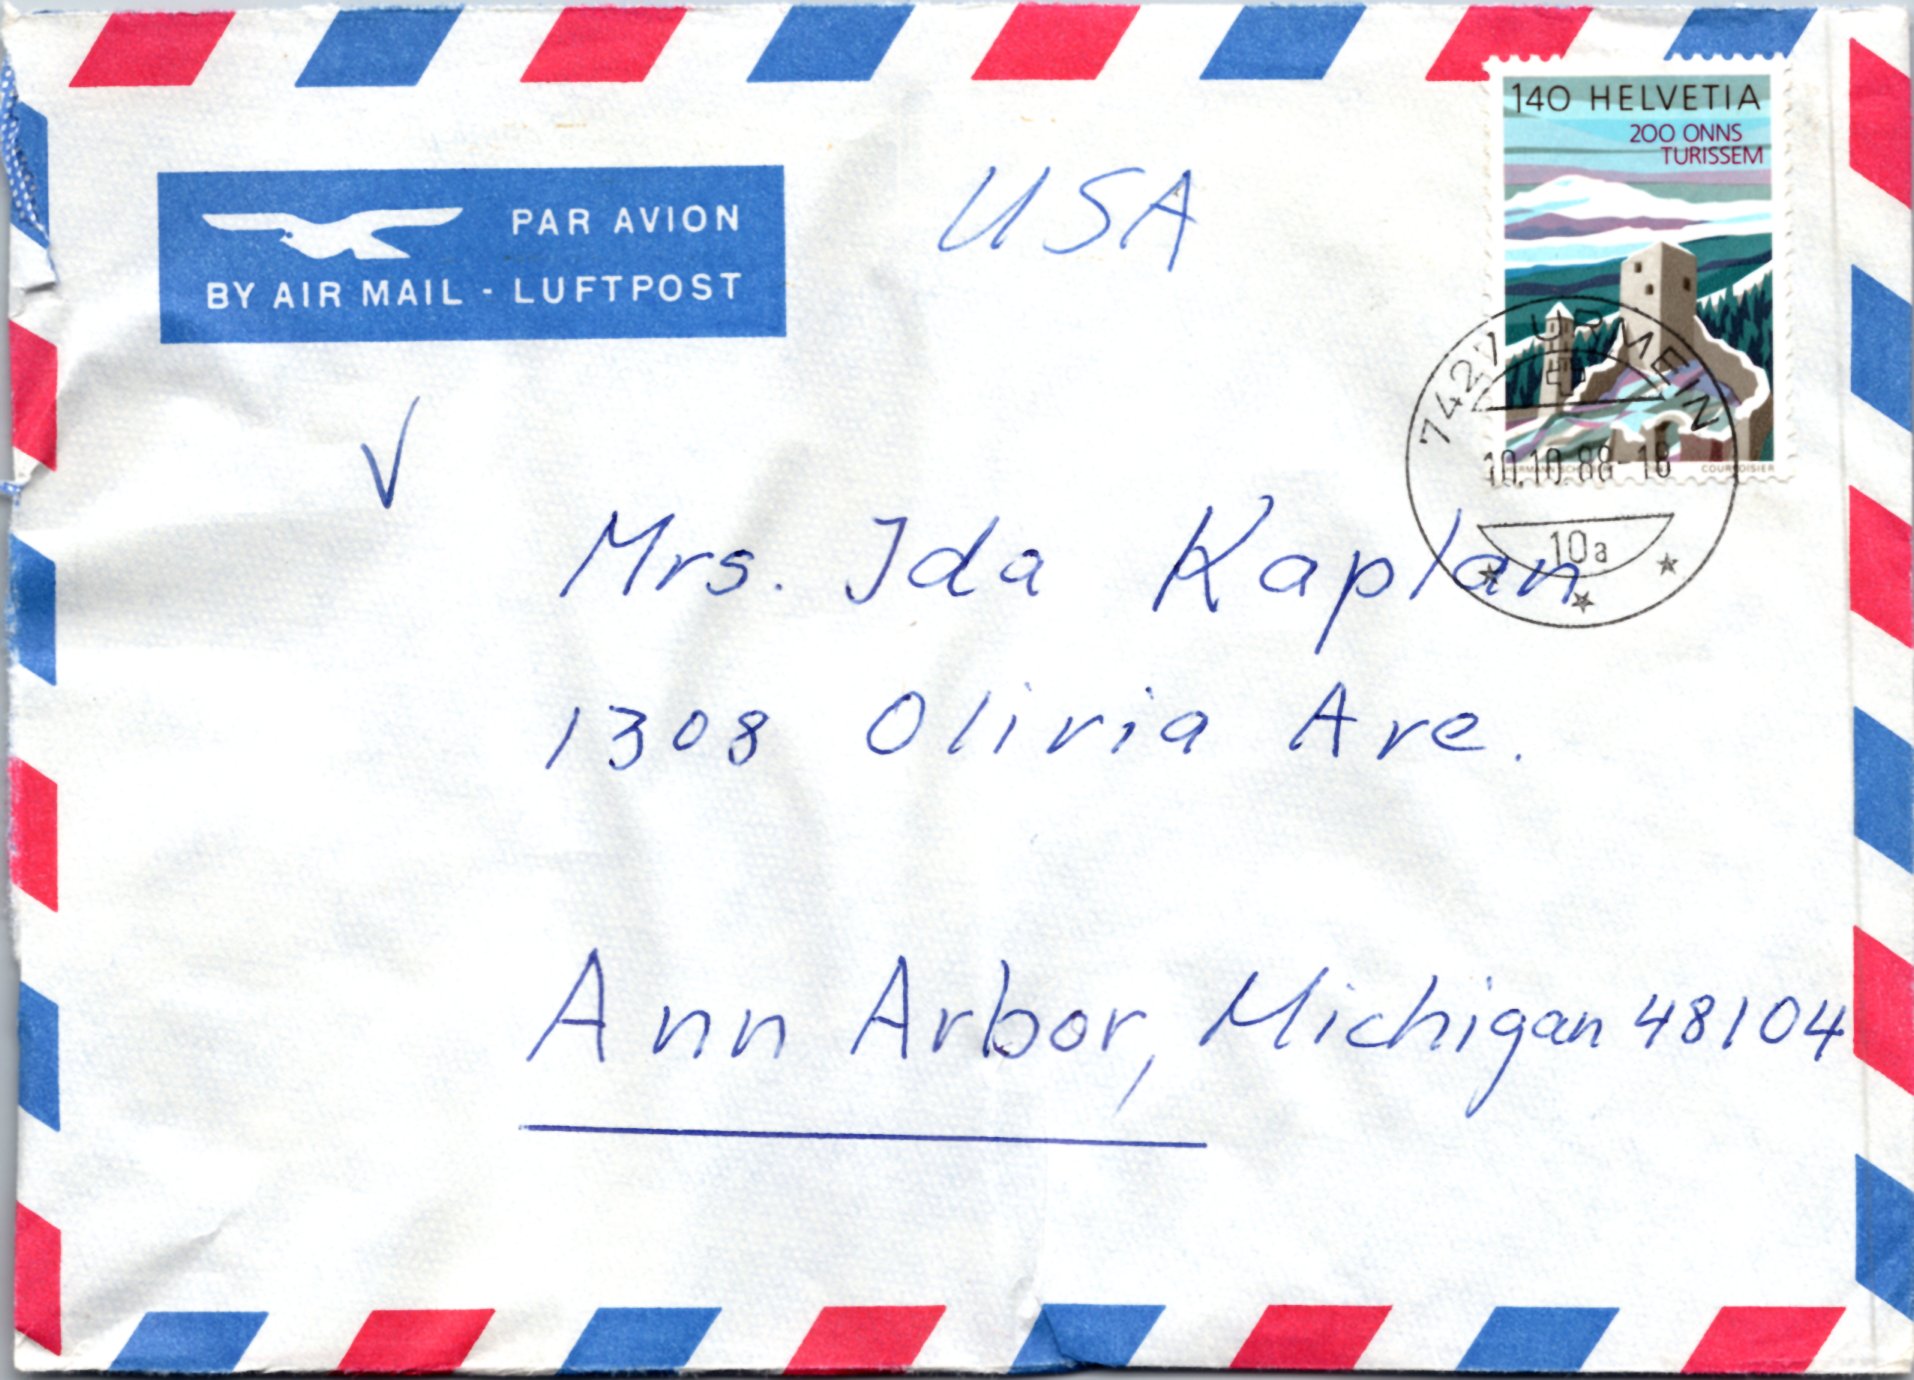 140 HELVETIA
200 ONNS
TURISSEM
PAR AVION
BY AIR MAIL - LUFTPOST
USA
7427 URMEIN
10.10.88-18
COURVOISIER
10a
Mrs. Ida Kaplan
1308 Olivia Ave.
Ann Arbor, Michigan 48104